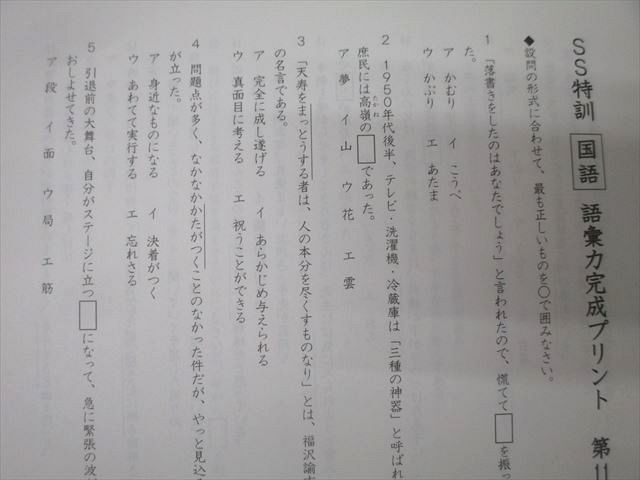 SS特訓 国語 語彙力完成プリント 第11
◆設問の形式に合わせて、最も正しいものを○で囲みなさい。
1 「落書きをしたのはあなたでしょう」と言われたので、慌てて□を振っ
た。
ア かむり イ こうべ
ウ かぶり エ あたま
2 1950年代後半、テレビ・洗濯機・冷蔵庫は「三種の神器」と呼ばれ
庶民には高嶺の□であった。
たかね
ア 夢 イ 山 ウ 花 エ 雲
3 「天寿をまっとうする者は、人の本分を尽くすものなり」とは、福沢諭
の名言である。
ア 完全に成し遂げる イ あらかじめ与えられる
ウ 真面目に考える エ 祝うことができる
4 問題点が多く、なかなかかたがつくことのなかった件だが、やっと見込
が立った。
ア 身近なものになる イ 決着がつく
ウ あわてて実行する エ 忘れさる
5 引退前の大舞台、自分がステージに立つ□になって、急に緊張の波が
おしよせてきた。
ア 段 イ 面 ウ 局 エ 筋